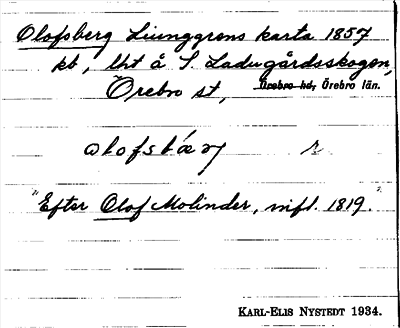 Olofsberg Ljunggrens karta 1857
kb, lht å S. Ladugårdsskogen,
Örebro st, Örebro hd, Örebro län.
olofsbärj
"Efter Olof Molinder, innfl. 1819."
KARL-ELIS NYSTEDT 1934.